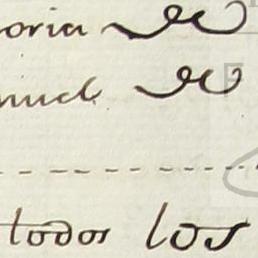 oria de
nuel de
todos los